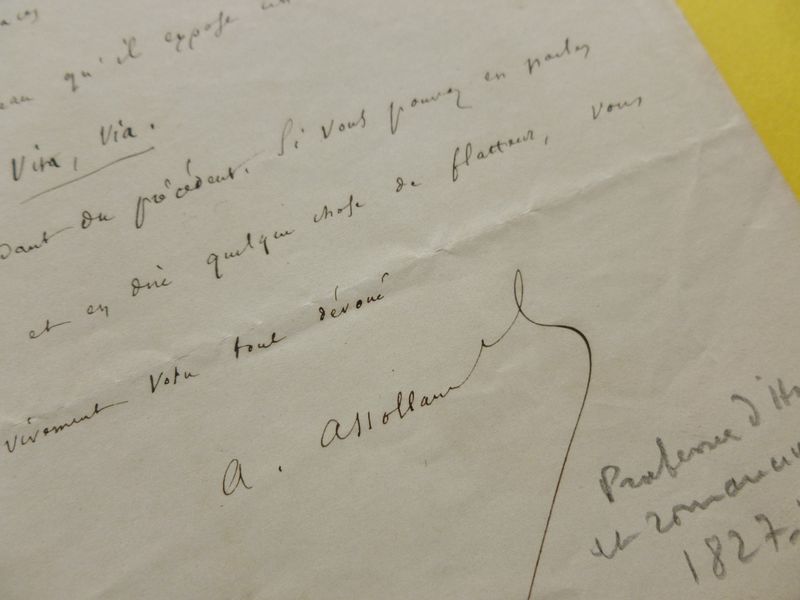 eau qu'il expose
Vita, Via.
du précédent. Si vous pouvez en parler
et en dire quelque chose de flatteur, vous
vivement Votre tout dévoué
A. Assollant
Professeur d'H
et romancier
1827